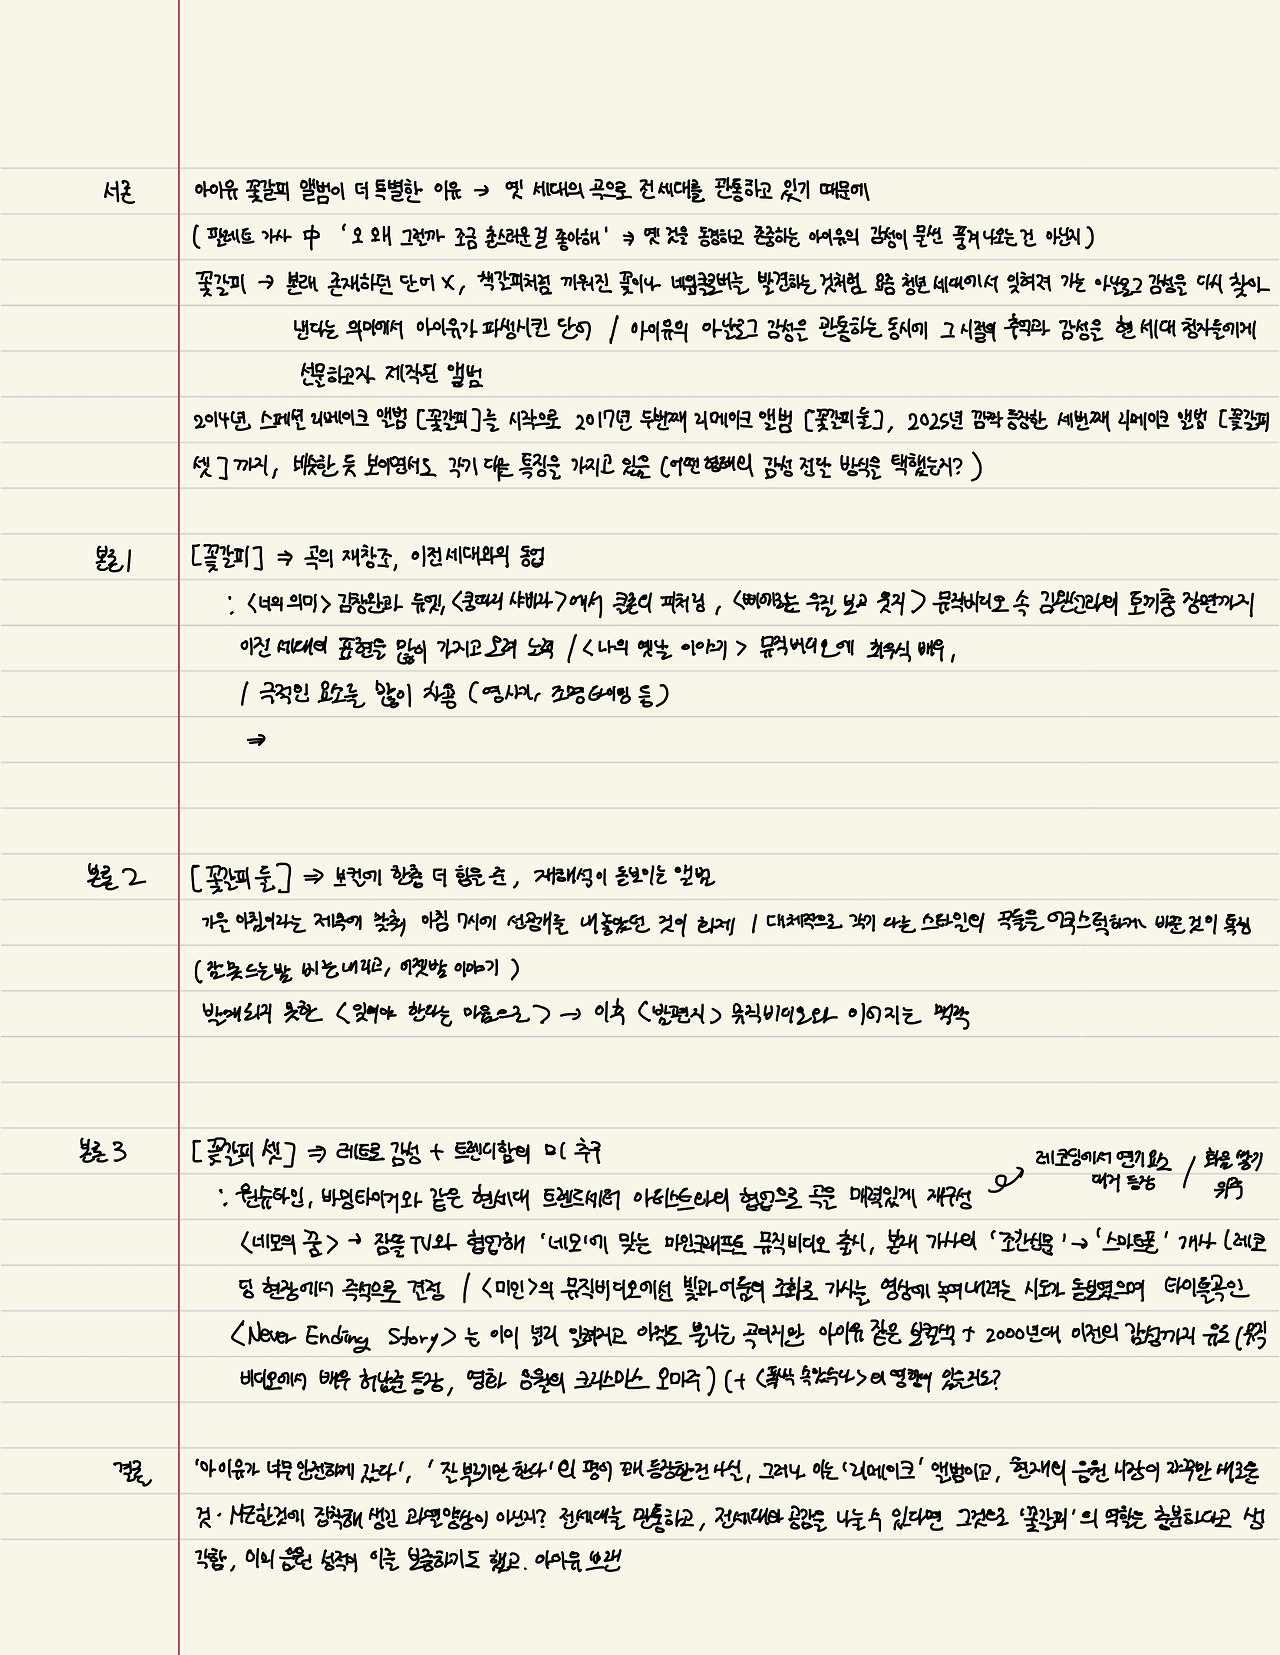 서론
아이유 꽃갈피 앨범이 더 특별한 이유 → 옛 세대의 곡으로 전 세대를 관통하고 있기 때문에
( 팔레트 가사 中 '오 왜 그럴까 조금 촌스러운 걸 좋아해' → 옛 것을 동경하고 존중하는 아이유의 감성이 물씬 풍겨 나오는 건 아닌지 )
꽃갈피 → 본래 존재하던 단어 X, 책갈피처럼 끼워진 꽃이나 네잎클로버를 발견하는 것처럼 요즘 청년 세대에서 잊혀져 가는 아날로그 감성을 다시 찾아
낸다는 의미에서 아이유가 파생시킨 단어 / 아이유의 아날로그 감성을 관통하는 동시에 그 시절의 추억과 감성을 현 세대 청자들에게
선물하고자 제작된 앨범
2014년 스페셜 리메이크 앨범 [꽃갈피]를 시작으로 2017년 두번째 리메이크 앨범 [꽃갈피 둘], 2025년 깜짝 등장한 세번째 리메이크 앨범 [꽃갈피
셋]까지, 비슷한 듯 보이면서도 각기 다른 특징을 가지고 있음 (어떤 형태의 감성 전달 방식을 택했는지? )
본론1
[꽃갈피] ⇒ 곡의 재창조, 이전 세대와의 동업
∵ <너의 의미> 김창완과 듀엣, <쿵따리 샤바라>에서 클론의 피처링, <삐에로는 우릴 보고 웃지> 뮤직비디오 속 김완선과의 토끼춤 장면까지
이전 세대의 표현을 많이 가지고 오려 노력 / <나의 옛날 이야기> 뮤직비디오에 최우식 배우,
/ 극적인 요소를 많이 차용 ( 영사기, 조명 등 )
⇒
본론 2
[꽃갈피 둘] ⇒ 보컬에 한층 더 힘을 준, 재해석이 돋보이는 앨범
가을 아침이라는 제목에 맞춰 아침 7시에 선공개를 내놓았던 것이 화제 / 대체적으로 각기 다른 스타일의 곡들을 어쿠스틱하게 바꾼 것이 특징
(잠 못 드는 밤 비는 내리고, 어젯밤 이야기 )
발매되지 못한 <잊어야 한다는 마음으로> → 이후 <밤편지> 뮤직비디오와 이어지는 맥락
본론 3
[꽃갈피 셋] ⇒ 레트로 감성 + 트렌디함의 미 추구
레코딩에서 연기 요소 대거 등장 / 화음 쌓기 위주
∵ 원슈타인, 바밍타이거와 같은 현세대 트렌드세터 아티스트와의 협업으로 곡을 매력있게 재구성
<네모의 꿈> → 잠뜰TV와 협업해 '네모'에 맞는 마인크래프트 뮤직비디오 출시, 본래 가사의 '조간신문' → '스마트폰' 개사 (레코
딩 현장에서 즉석으로 결정 / <미인>의 뮤직비디오에선 빛과 어둠의 조화로 가사를 영상에 녹여내려는 시도가 돋보였으며 타이틀곡인
<Never Ending Story>는 이미 널리 알려지고 아직도 불리는 곡이지만 아이유 짙은 보컬색 + 2000년대 이전의 감성까지 유도 (뮤직
비디오에서 배우 허남준 등장, 영화 8월의 크리스마스 오마주) (+ <폭싹 속았수다>의 영향이 있을지도?
결론
'아이유가 너무 안전하게 갔다', '잔 부리기만 한다'의 평이 꽤 등장한 건 사실, 그러나 이는 '리메이크' 앨범이고, 현재의 음원 시장이 자꾸만 새로운
것 · MZ한것에 집착해 생긴 과열양상이 아닌지? 전세대를 관통하고, 전세대와 공감을 나눌 수 있다면 그것으로 '꽃갈피'의 역할은 충분하다고 생
각함, 이의 음원 성적이 이를 보증하기도 했고. 아이유 브랜